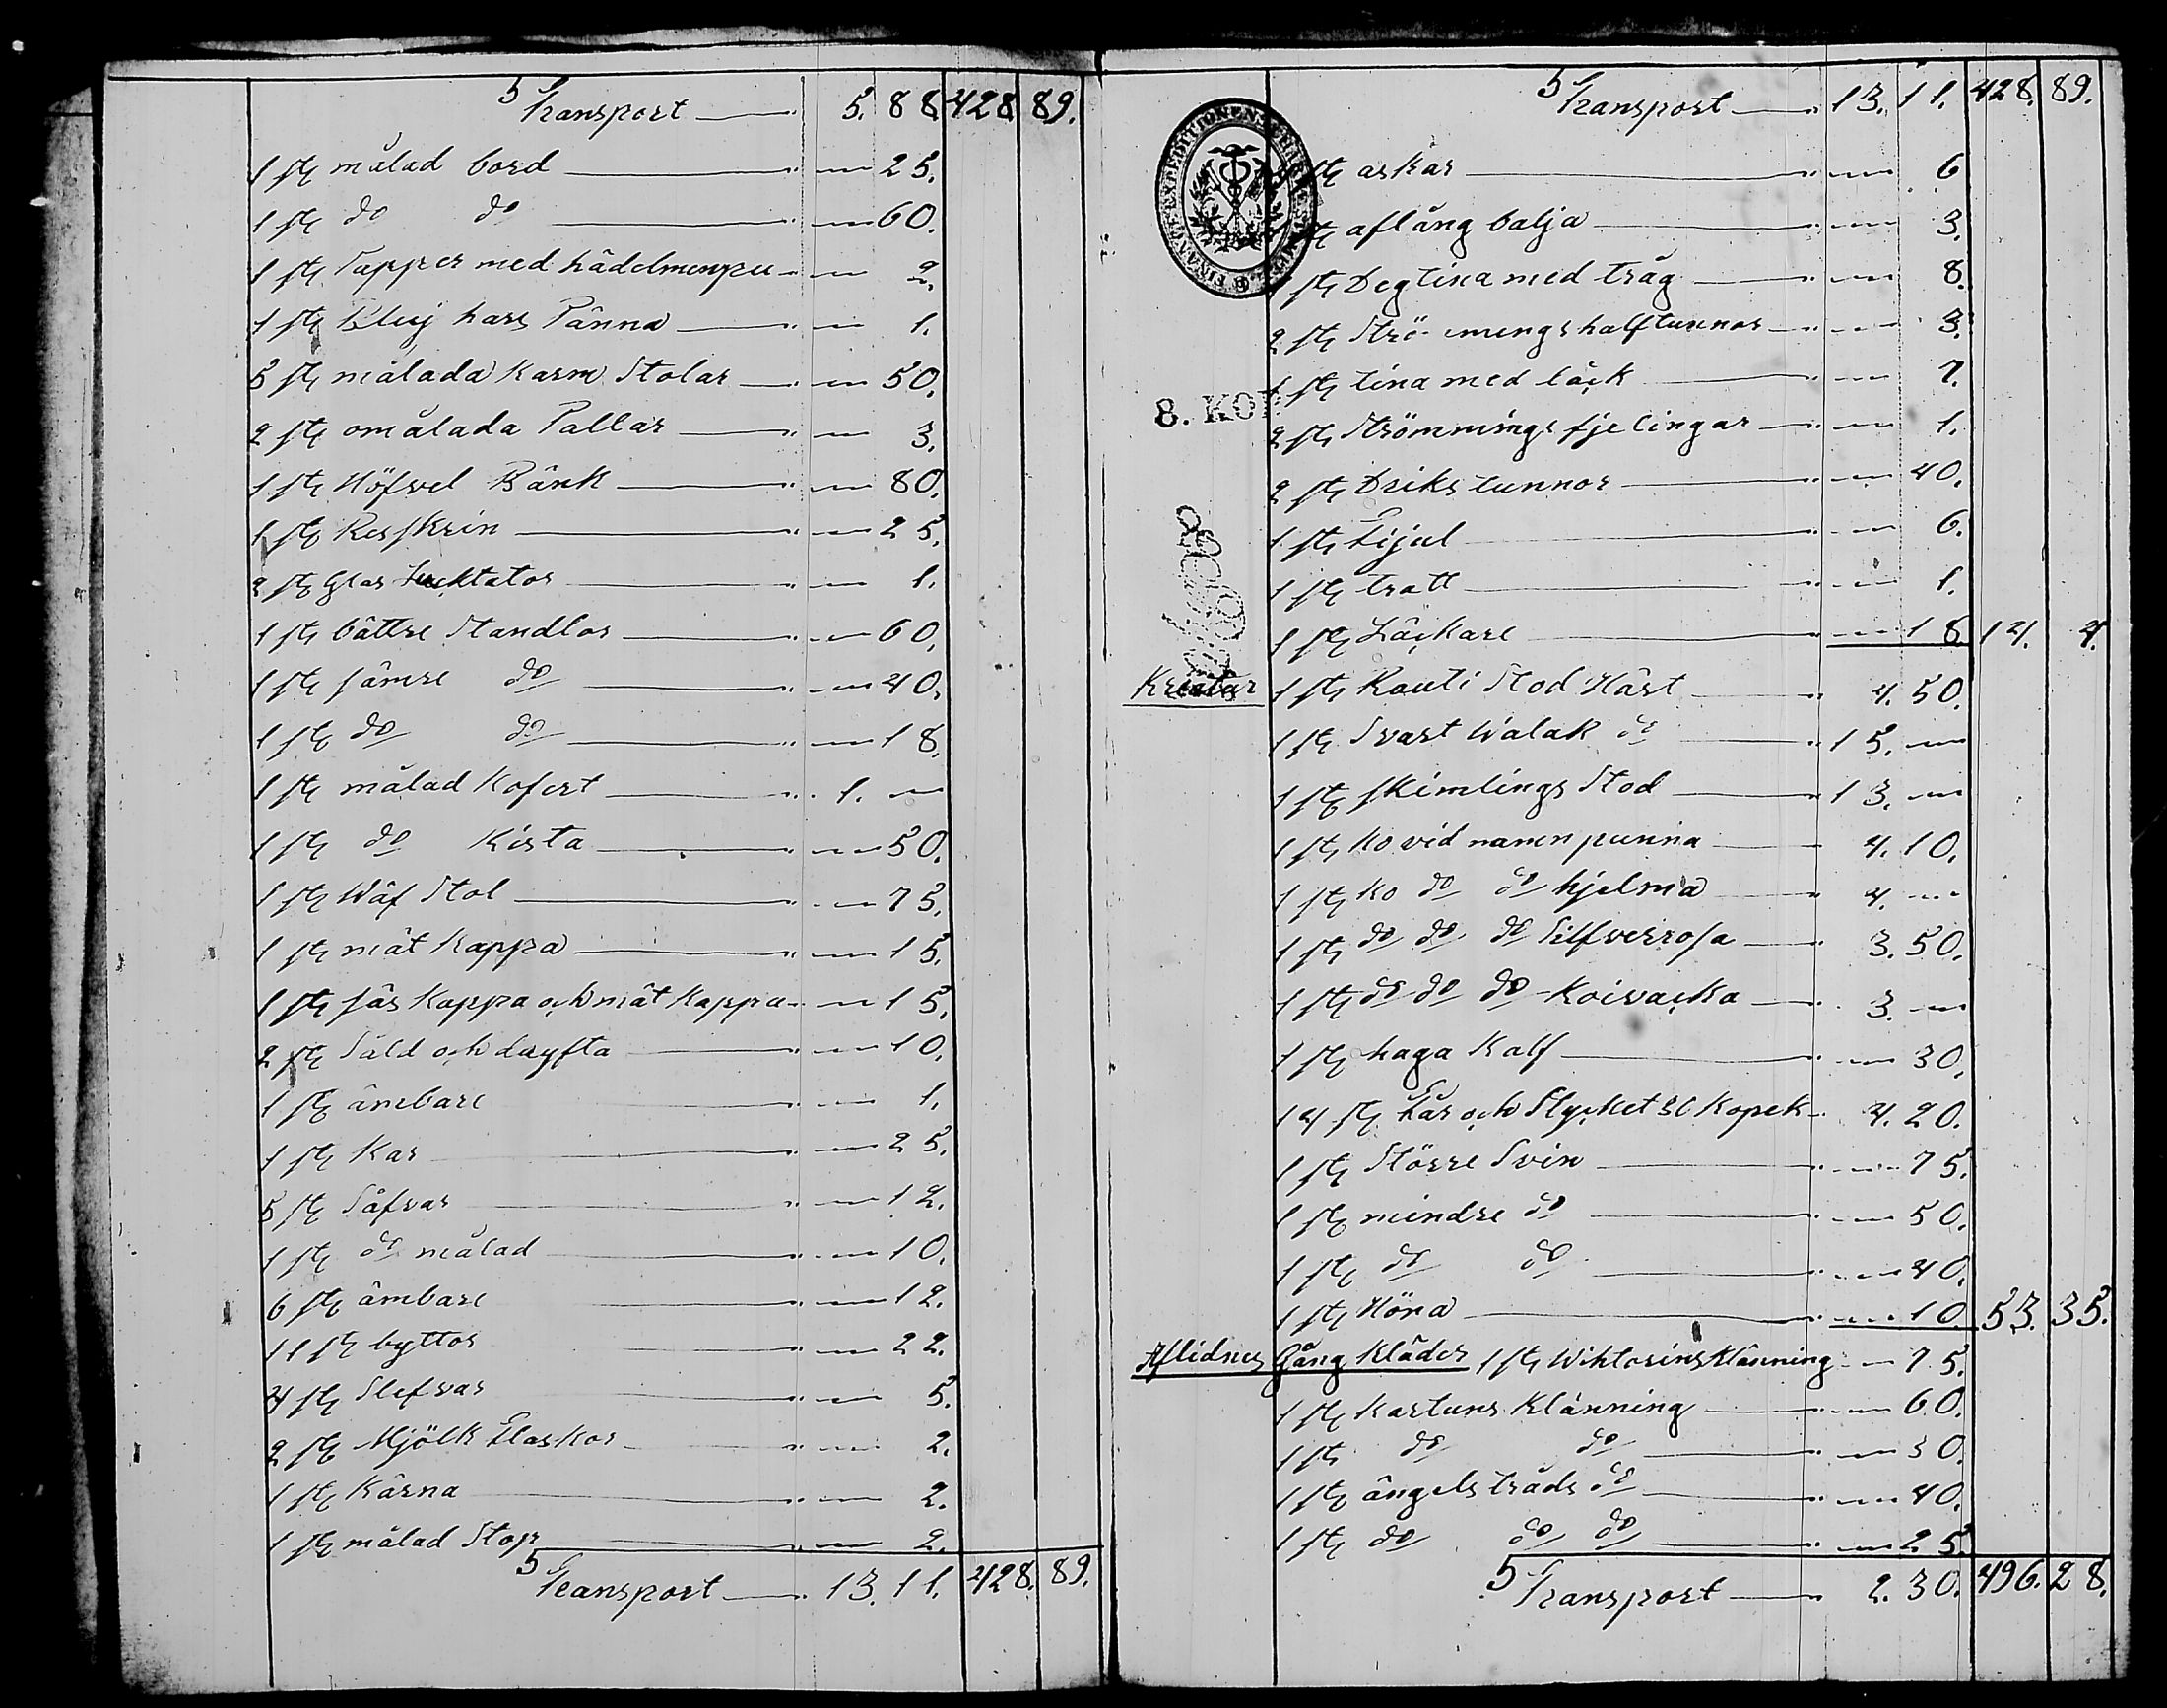 Transport — 5. 88. 428. 89.
1 st målad bord — 25.
1 st do do — 60.
1 st Tapper med — 2.
1 st hars Panna — 1.
5 st målada Karm Stolar — 50.
2 st omålada Pallar — 3.
1 st Höfvel Bänk — 80.
1 st Resskrin — 25.
2 st Glas — 1.
1 st bättre Standlar — 60.
1 st sämre do — 40.
1 st do do — 18.
1 st målad Kofert — 1. —
1 st do Kista — 50.
1 st Wäf Stol — 75.
1 st mät Kappa — 15.
1 st sås Kappa och mät Kappa — 15.
2 st Såld och dryfta — 10.
1 st ämbare — 1.
1 st Kar — 25.
5 st Såfvar — 12.
1 st do målad — 10.
6 st ämbare — 12.
11 st byttor — 22.
4 st Slefvar — 5.
2 st Mjölk Flaskor — 2.
1 st Kärna — 2.
1 st målad Stop — 2.
Transport — 13. 11. 428. 89.
Transport — 13. 11. 428. 89.
st askar — 6
st aflång balja — 3.
1 st Degtina med tråg — 8.
2 st Strömmings halftunnor — 3.
1 st tina med läck — 7.
8. KOP
2 st Strömmings fjelingar — 1.
2 st Driks tunnor — 40.
1 st — 6.
1 st tratt — 1.
1 st Läckare — 18. 14. 4.
Kreatur 1 st Rauti Stod Häst — 4. 50.
1 st Svart Walak do — 15. —
1 st skimlings Stod — 13. —
1 st Ko vid namn punna — 4. 10.
1 st Ko do do hjelma — 4. —
1 st do do do Silfverrosa — 3. 50.
1 st do do do Koivacka — 3. —
1 st haga Kalf — 30.
14 st Får och Stycket 30 Kopek — 4. 20.
1 st Större Svin — 75.
1 st mindre do — 50.
1 st do do — 40.
1 st Höna — 10. 53. 35.
Aflidnes Gång Kläder 1 st Wiktorins Klänning — 75.
1 st Kartuns Klänning — 60.
1 st do do — 30.
1 st ängels tråds do — 40.
1 st do do do — 25.
Transport — 2. 30. 496. 28.